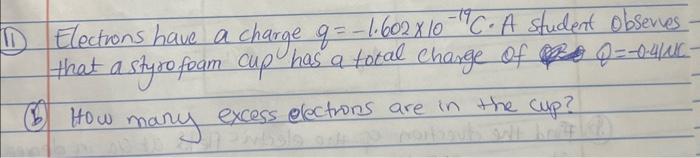 11 Electrons have a charge q = -1.602 x 10^-19 C. A student observes
that a styrofoam cup has a total charge of Q = -0.4 μC
b How many excess electrons are in the cup?